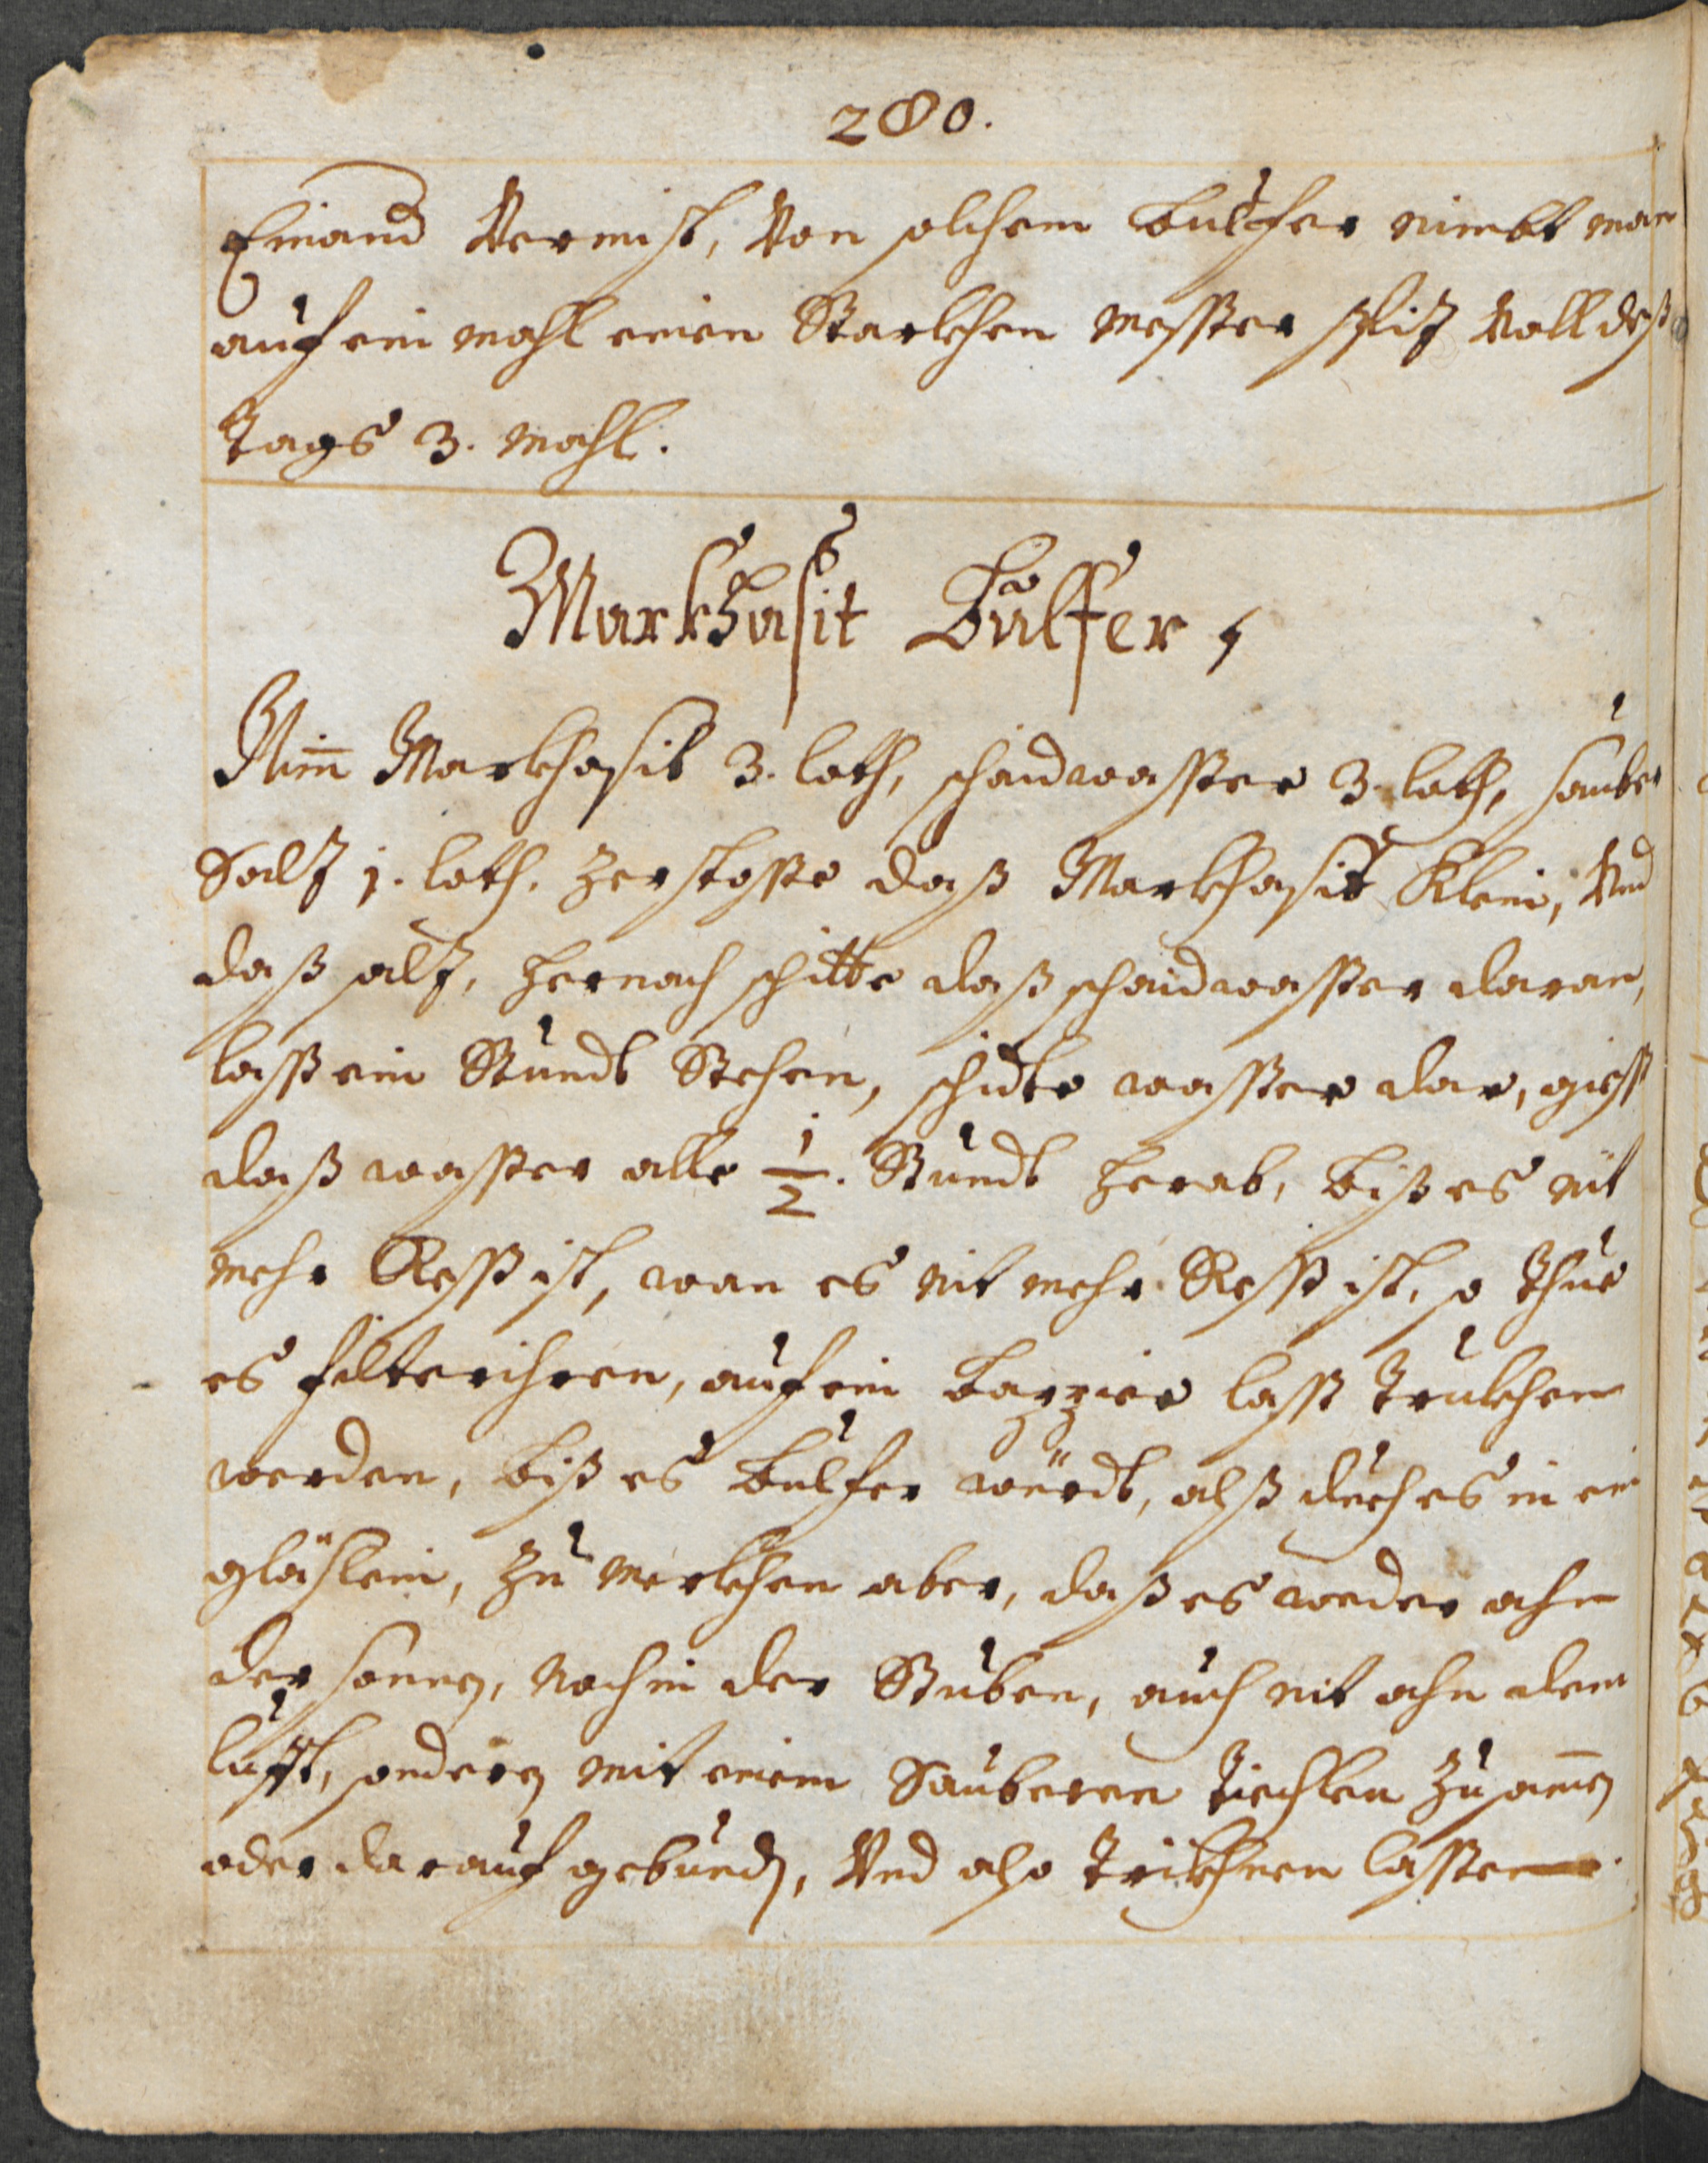 280.
Einand Vermischt, Von solchem bulfer nimbt man
auf ein mahl einen Starkhen messer spiz Voll deß
Tags 3. mahl.
Markhasit Bulffer,
Nim̄ Markhasit 3. loth, schaidwasser 3. loth, sauber
Salz 1. loth. zerstosse daß Markhasit Klein, Vnd
daß salz, hernach schitte daß schaidwasser daran,
lass ein Stundt Stehen, schidte wasser dar, giess
daß wasser alle 1/2. Stundt herab, biß es nit
mehr Ress ist, wan es nit mehr Ress ist, so thue
es filterihren, auf ein bappier lass Trukhen
werden, biß es bulfer würdt, alß dueh es in ein
gläslein, zu merkhen aber, daß es weder ahn
der sonnen, noch in der Stuben, auch nit ahn dem
lufft, sonderen mit einem Sauberen Tiechlen zusamen
oder darauf gebunden, Vnd also Trikhnen lassen.